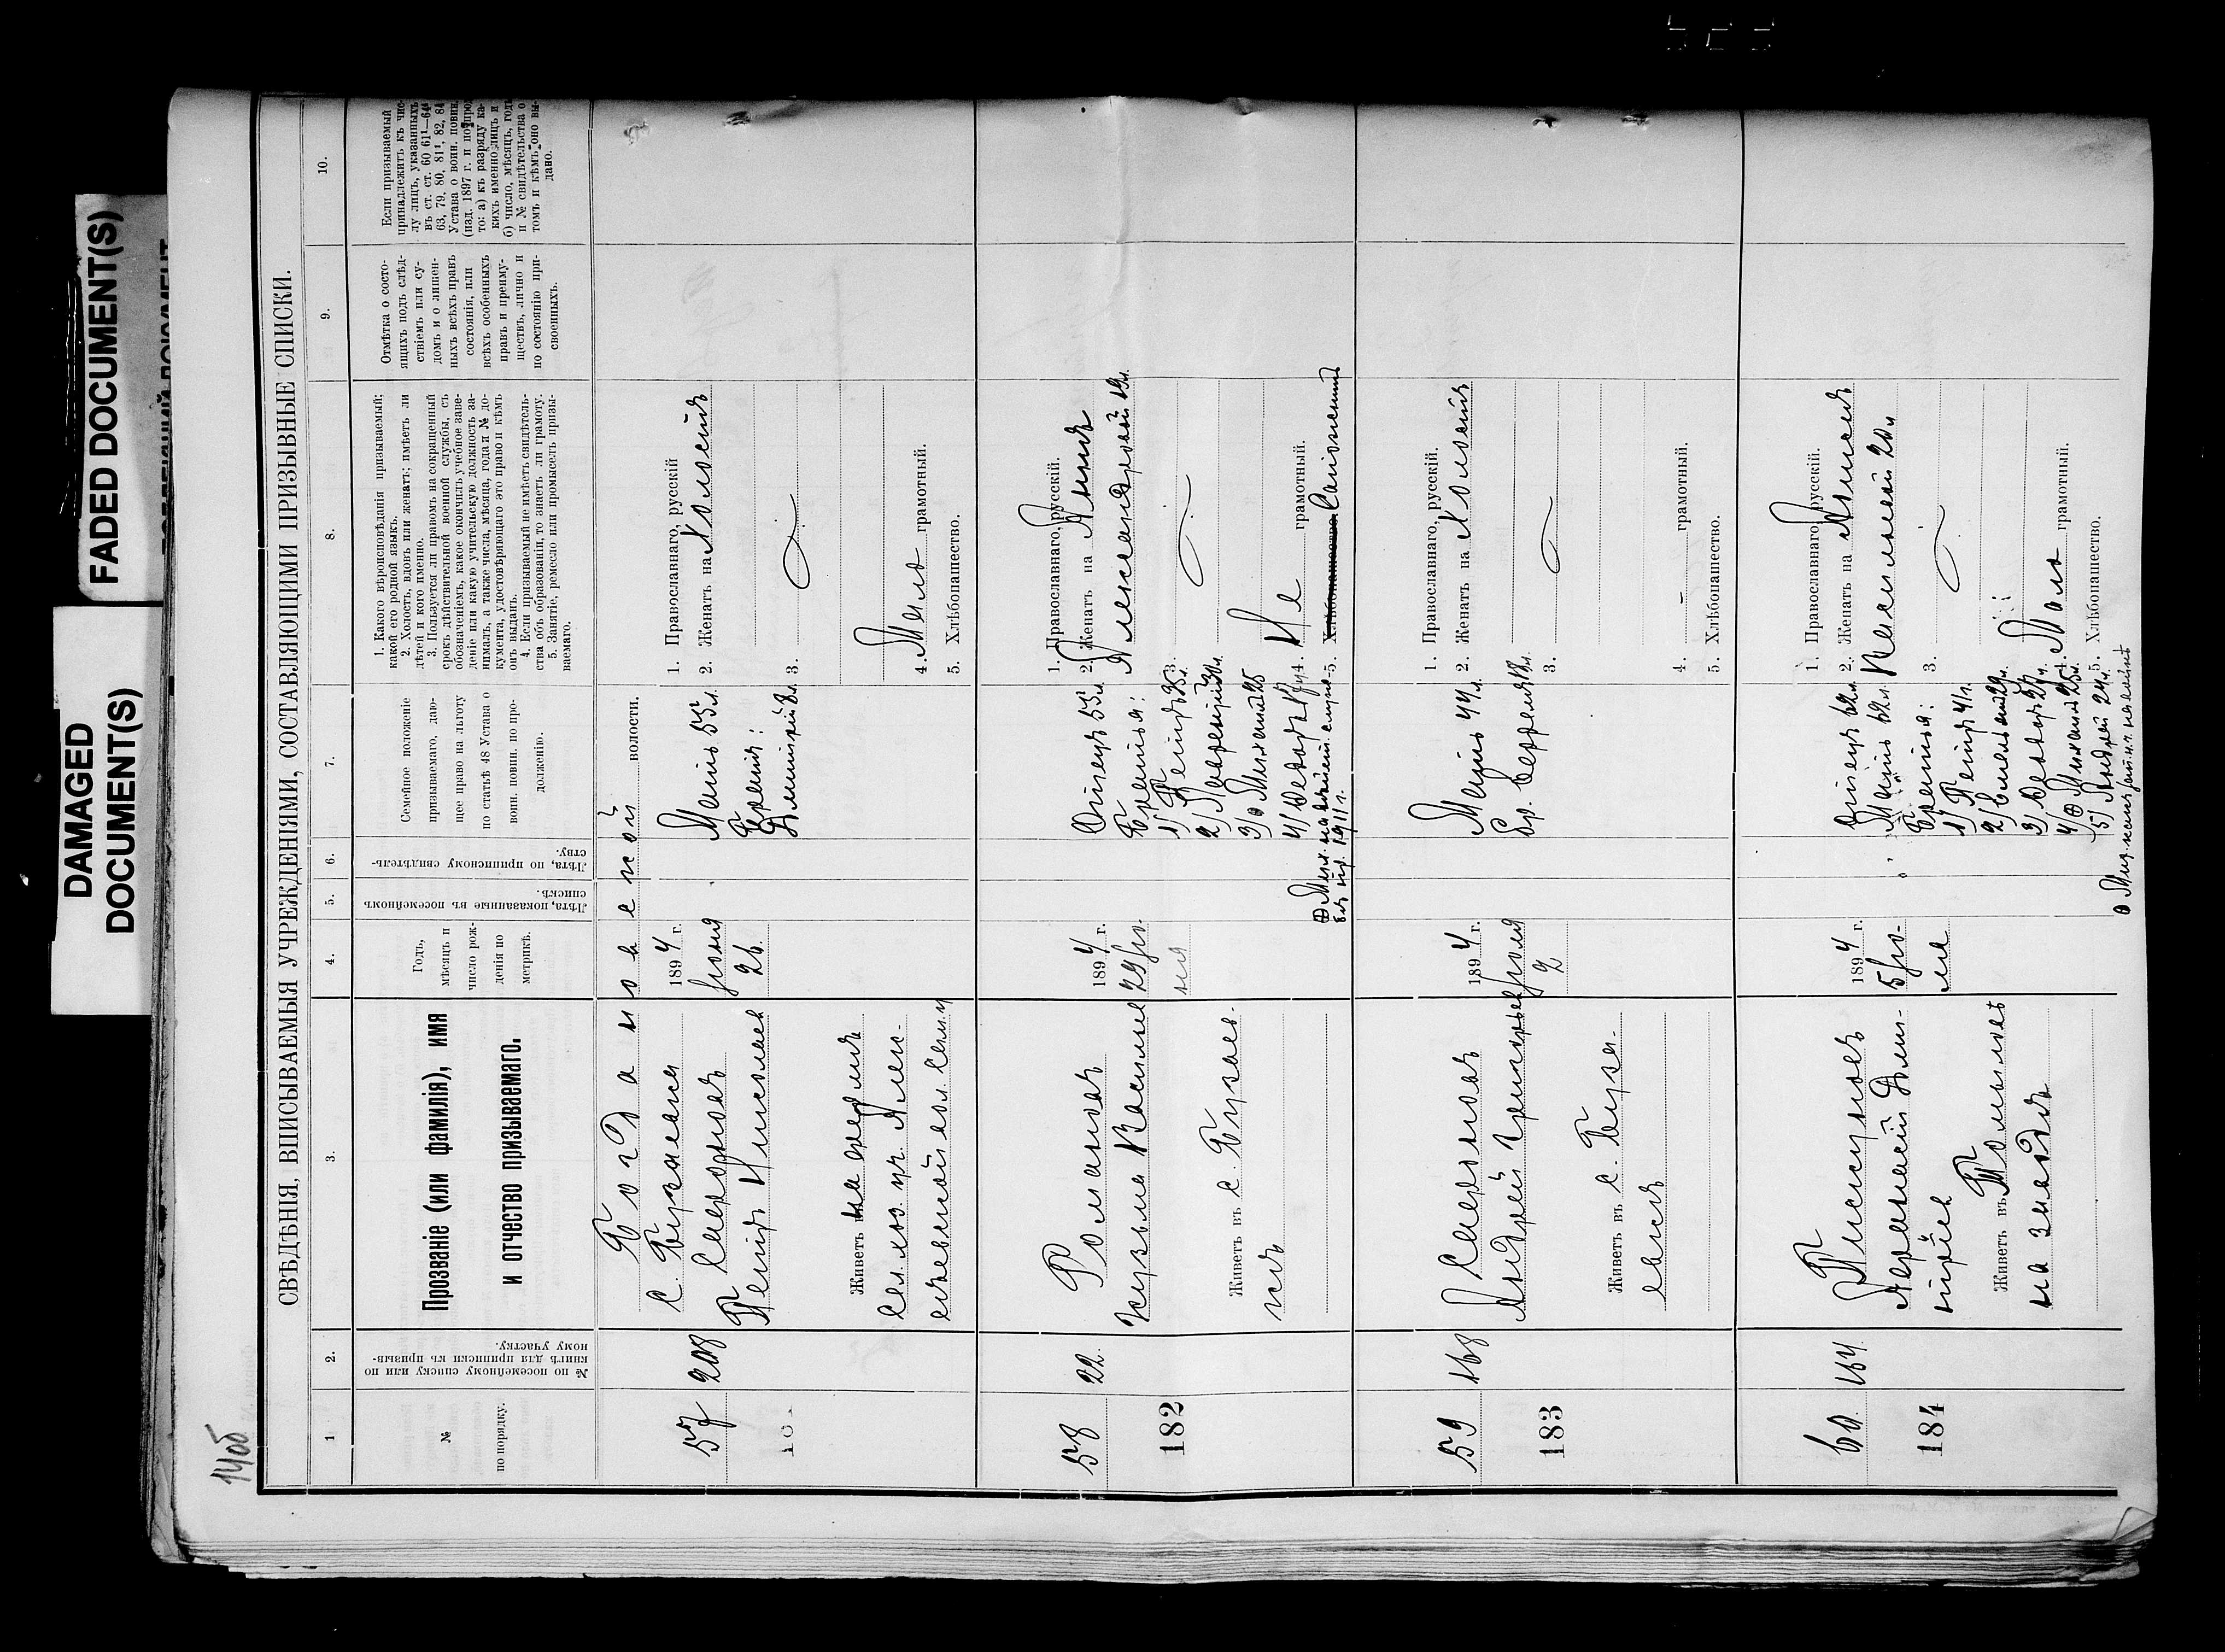 DAMAGED
DOCUMENT(S)
FADED DOCUMENT(S)
14об
СВѢДѢНІЯ, ВПИСЫВАЕМЫЯ УЧРЕЖДЕНІЯМИ, СОСТАВЛЯЮЩИМИ ПРИЗЫВНЫЕ СПИСКИ.
1
2.
3.
4.
5.
6.
7.
8.
9.
10.
№
по порядку.
№ по посемейному списку или по
книгѣ для приписки къ призыв-
ному участку.
Прозваніе (или фамилія), имя
и отчество призываемаго.
Годъ,
мѣсяцъ и
число рож-
денія по
метрикѣ.
Лѣта, показанные въ посемейномъ
спискѣ.
Лѣта, по приписному свидѣтель-
ству.
Семейное положеніе
призываемаго, даю-
щее право на льготу
по статьѣ 48 Устава о
воин. повин. по про-
долженію.
1. Какого вѣроисповѣданія призываемый;
какой его родной языкъ.
2. Холостъ, вдовъ или женатъ; имѣетъ ли
дѣтей и кого именно.
3. Пользуется ли правомъ на сокращенный
срокъ дѣйствительной военной службы, съ
обозначеніемъ, какое окончилъ учебное заве-
деніе или какую учительскую должность за-
нималъ, а также числа, мѣсяца, года и № до-
кумента, удостовѣряющаго это право и кѣмъ
онъ выданъ.
4. Если призываемый не имѣетъ свидѣтель-
ства объ образованіи, то знаетъ ли грамоту.
5. Занятіе, ремесло или промыселъ призы-
ваемаго.
Отмѣтка о состо-
ящихъ подъ слѣд-
ствіемъ или су-
домъ и о лишен-
ныхъ всѣхъ правъ
состоянія, или
всѣхъ особенныхъ
правъ и преиму-
ществъ, лично и
по состоянію при-
своенныхъ.
Если призываемый
принадлежитъ къ чис-
лу лицъ, указанныхъ
въ ст. ст. 60 61¹—64¹
63, 79, 80, 81¹, 82, 84
Устава о воин. повин.
(изд. 1897 г. и по прод
то: а) къ разряду ка-
кихъ именно лицъ и
б) число, мѣсяцъ, годъ
и № свидѣтельства о
томъ и кѣмъ оно вы-
дано.
Богдановской волости.
57
208
с. Бузаевка
Сафроновъ
Петръ Николаев
Живетъ на ферми
Сел. хоз. уч. Алек-
1894 г.
Іюня
26.
Мать 55 л.
Братъ:
Дмитрій 8 л.
1. Православнаго, русскій
2. Женатъ на Холостъ
3.
4. Мало грамотный.
5. Хлѣбопашество.
58
182
22.
Романовъ
Кузьма Василье
Живетъ въ с. Бузаев-
кѣ
1894 г.
29 Ію-
ня
Отецъ 55 л.
Братья:
1) Петръ 35 л.
3) Михаилъ 25
4) Ѳедоръ
1. Православнаго, русскій.
2. Женатъ на Аннѣ
Александровой 19 л.
3.
4. Не грамотный.
5. Хлѣбопашество. Сапожникъ
59
183
168
Сафроновъ
Андрей Григорьев
Живетъ въ с. Буза-
евкѣ
1894 г.
Іюля
2
Мать 44 л.
1. Православнаго, русскій.
2. Женатъ на Холостъ
3.
4. – грамотный.
5. Хлѣбопашество.
60.
184
164
Пискуновъ
Афанасій Дмит-
ріев
Живетъ въ
на заводѣ
1894 г.
5 Ію-
ля
Отецъ 62 л.
Мать 62 л.
Братья:
1) Петръ 41 л.
3) Ѳедоръ
4) Михаилъ 25 л.
5) Андрей 24 л.
1. Православнаго, русскій.
2. Женатъ на
Васильевой 20 л
3.
4. Мало грамотный.
5. Хлѣбопашество.